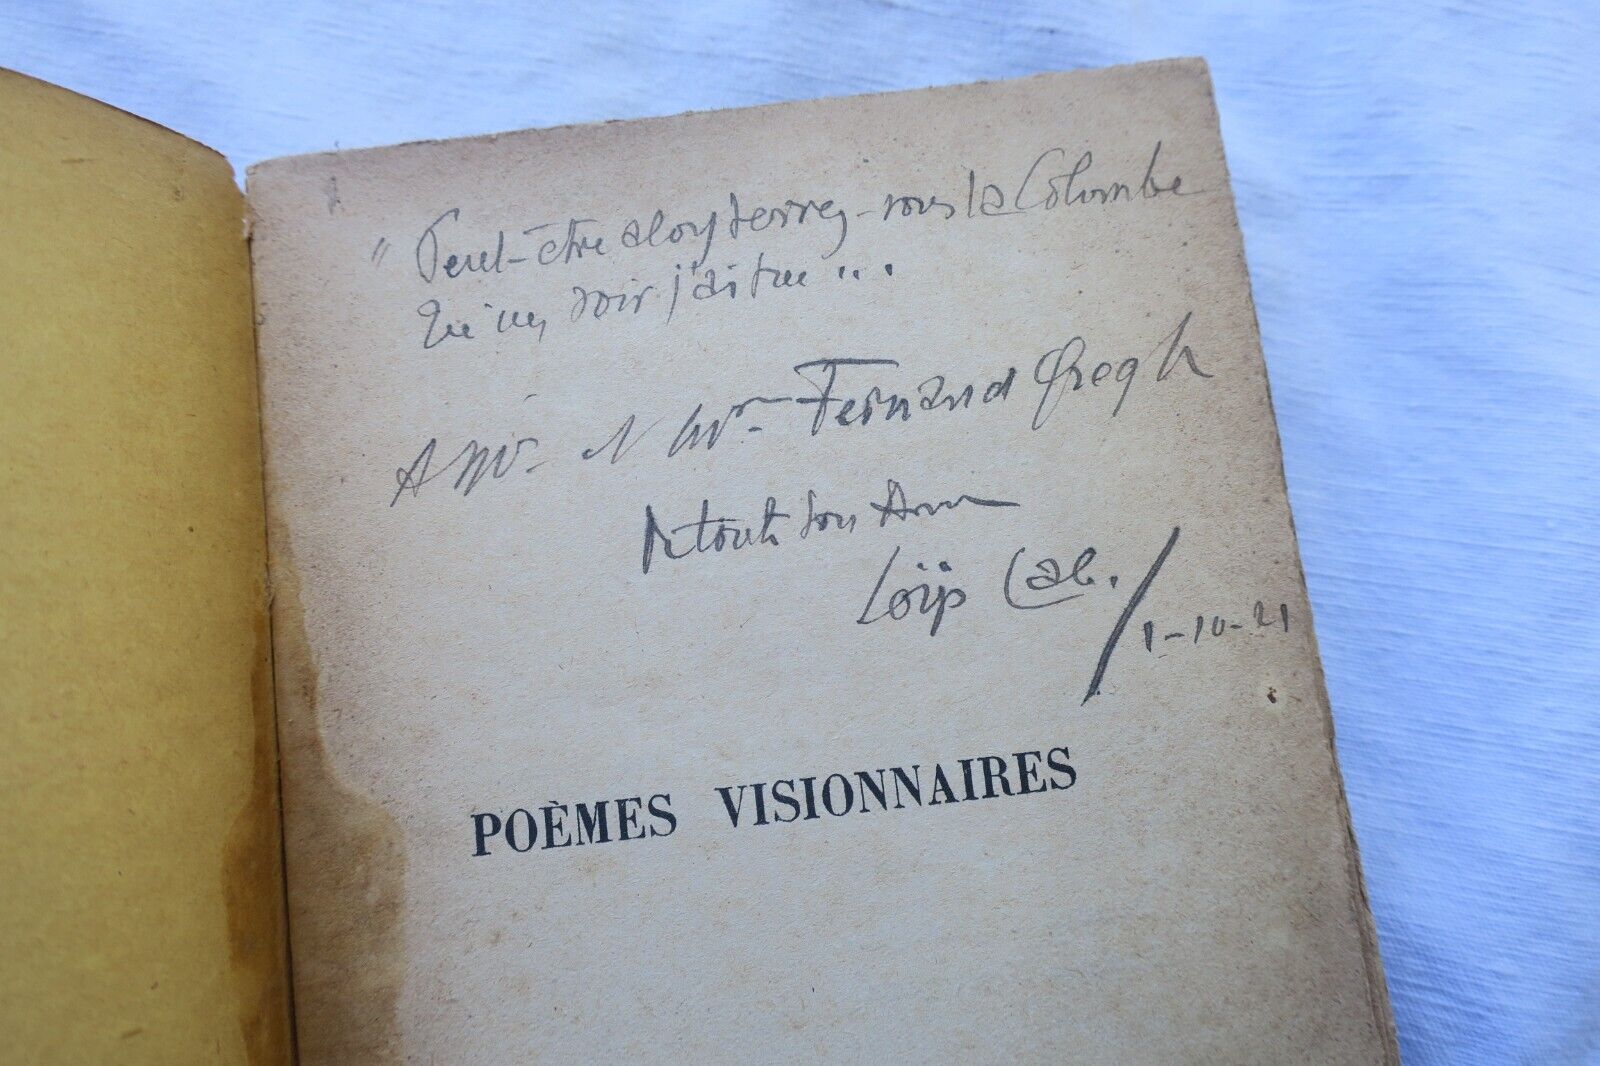 " Peut-être alors serrez-vous la Colombe
Qu'un soir j'ai tue...
A Mr. et Mme Fernand Gregh
De toute son Ame
Loÿs Lab.
1-10-21
POÈMES VISIONNAIRES